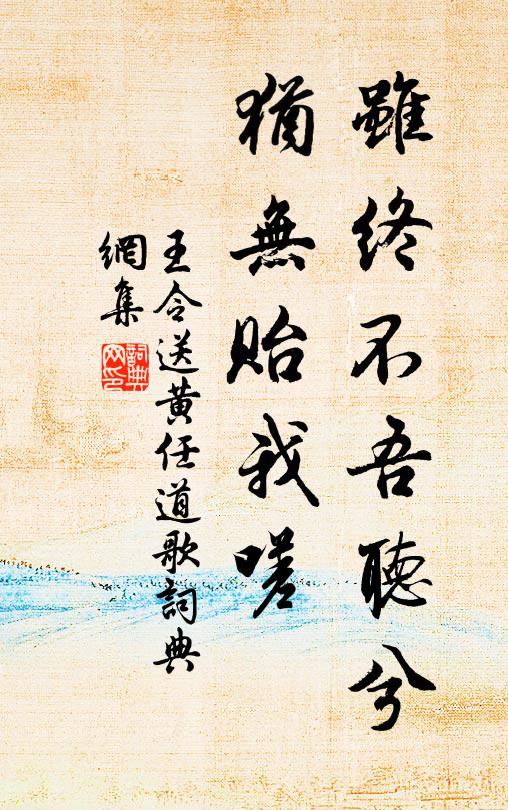 雖終不吾聽兮
猶無貽我嗟
王令送黃任道歌詞典
網集
詞典
网印